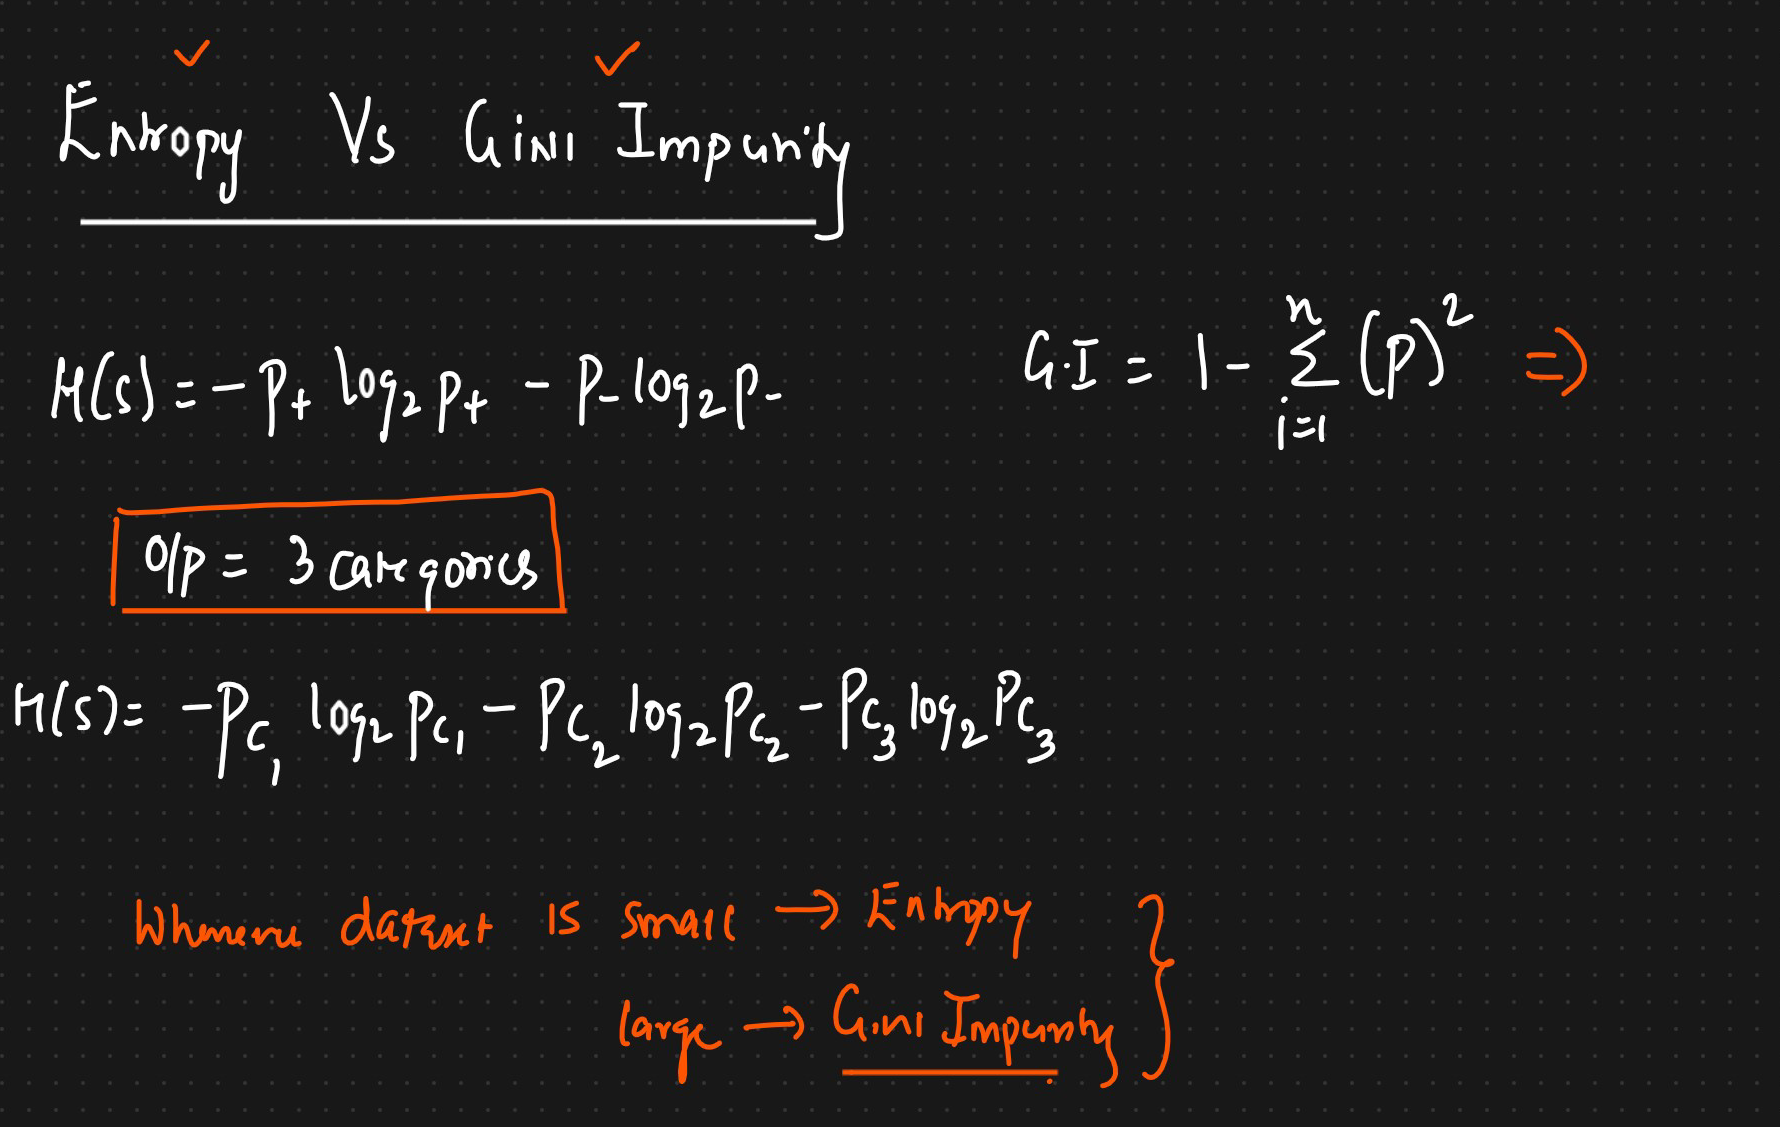 Entropy Vs Gini Impurity
H(s) = -P+ log2 P+ - P- log2 P-
G.I = 1 - n∑i=1 (P)^2 =>
O/P = 3 categories
H(s) = -PC1 log2 PC1 - PC2 log2 PC2 - PC3 log2 PC3
Whenever dataset is small → Entropy
large → Gini Impurity